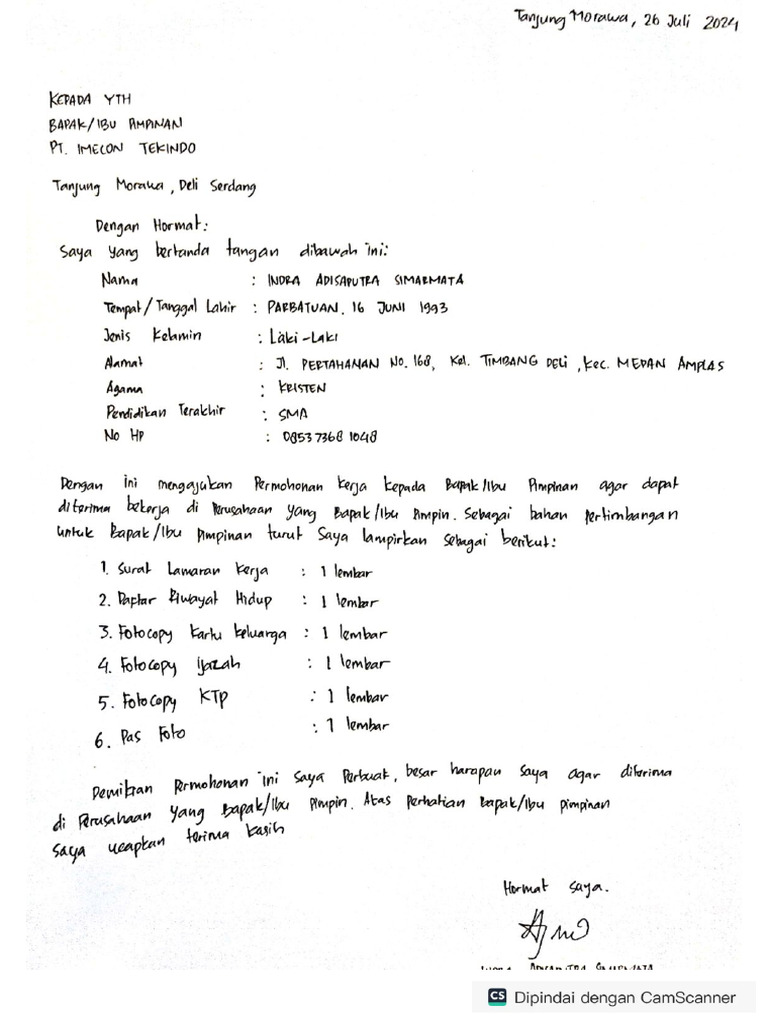 Tanjung Morawa, 26 Juli 2024
KEPADA YTH
BAPAK/IBU PIMPINAN
PT. IMECON TEKINDO
Tanjung Morawa, Deli Serdang
Dengan Hormat:
Saya yang bertanda tangan dibawah ini:
Nama : INDRA ADISAPUTRA SIMARMATA
Tempat/Tanggal Lahir : PARBATUAN, 16 JUNI 1993
Jenis Kelamin : Laki-Laki
Alamat : Jl. PERTAHANAN No. 168, Kel. TIMBANG DELI, Kec. MEDAN AMPLAS
Agama : KRISTEN
Pendidikan Terakhir : SMA
No HP : 0853 7368 1048
Dengan ini mengajukan Permohonan Kerja Kepada Bapak/Ibu Pimpinan agar dapat
diterima bekerja di Perusahaan yang Bapak/Ibu Pimpin. Sebagai bahan Pertimbangan
untuk Bapak/Ibu Pimpinan turut Saya lampirkan sebagai berikut:
1. Surat Lamaran Kerja : 1 lembar
2. Daptar Riwayat Hidup : 1 lembar
3. Fotocopy Kartu Keluarga : 1 lembar
4. Fotocopy Ijazah : 1 lembar
5. Fotocopy KTP : 1 lembar
6. Pas Foto : 1 lembar
Demikian Permohonan ini Saya Perbuat, besar harapan saya agar diterima
di Perusahaan yang Bapak/Ibu Pimpin. Atas Perhatian Bapak/Ibu pimpinan
Saya ucapkan terima kasih
Hormat saya.
CS Dipindai dengan CamScanner